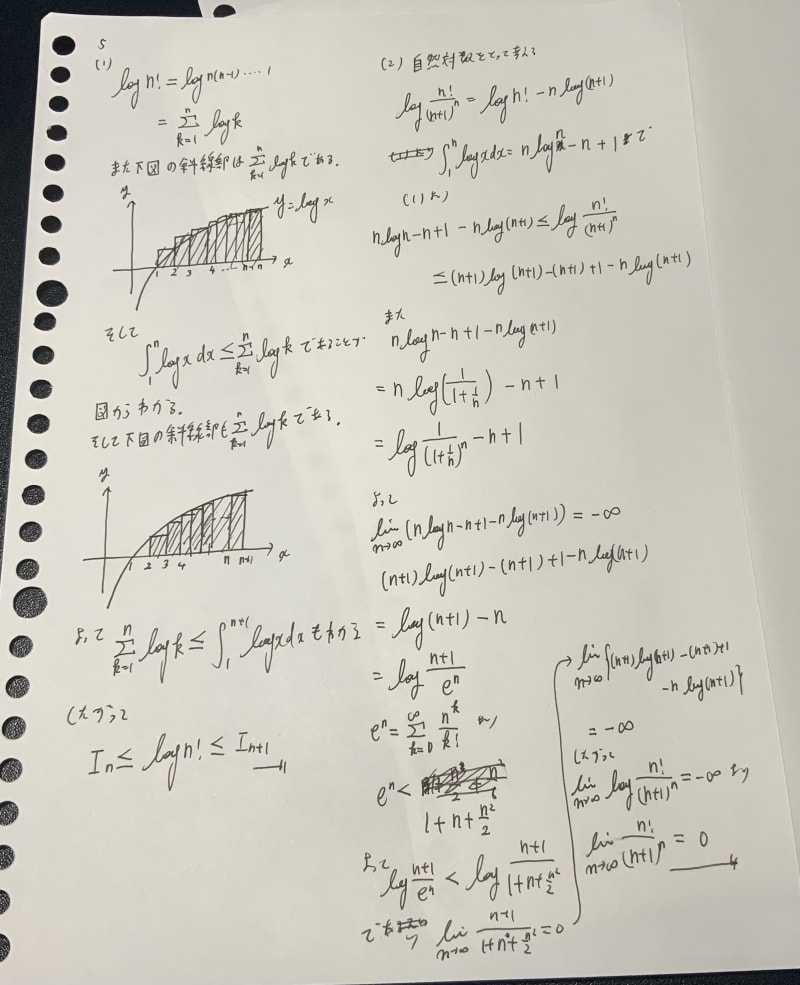 5
(1)
log n! = log n(n-1)‥‥1
= Σ_{k=1}^{n} log k
また下図の斜線部は Σ_{k=1}^{n} log k である.
y
y = log x
1 2 3 4 … n-1 n x
そして
∫_1^n log x dx ≤ Σ_{k=1}^{n} log k であることが
図からわかる.
そして下図の斜線部も Σ_{k=1}^{n} log k である.
y
1 2 3 4 n n+1 x
よって Σ_{k=1}^{n} log k ≤ ∫_1^{n+1} log x dx もわかる
したがって
I_n ≤ log n! ≤ I_{n+1}
(2) 自然対数をとって考える
log n!/(n+1)^n = log n! - n log(n+1)
∫_1^n log x dx = n log n - n + 1 で
(1)より
n log n - n + 1 - n log(n+1) ≤ log n!/(n+1)^n
≤ (n+1) log(n+1) - (n+1) + 1 - n log(n+1)
また
n log n - n + 1 - n log(n+1)
= n log(1/(1+1/n)) - n + 1
= log 1/(1+1/n)^n - n + 1
よって
lim_{n→∞} (n log n - n + 1 - n log(n+1)) = -∞
(n+1) log(n+1) - (n+1) + 1 - n log(n+1)
= log(n+1) - n
= log (n+1)/e^n
e^n = Σ_{k=0}^{∞} n^k/k! より
e^n <
1 + n + n^2/2
よって
log (n+1)/e^n < log (n+1)/(1+n+n^2/2)
lim_{n→∞} (n+1)/(1+n+n^2/2) = 0
→ lim_{n→∞} {(n+1) log(n+1) - (n+1) + 1
- n log(n+1)}
= -∞
したがって
lim_{n→∞} log n!/(n+1)^n = -∞ より
lim_{n→∞} n!/(n+1)^n = 0